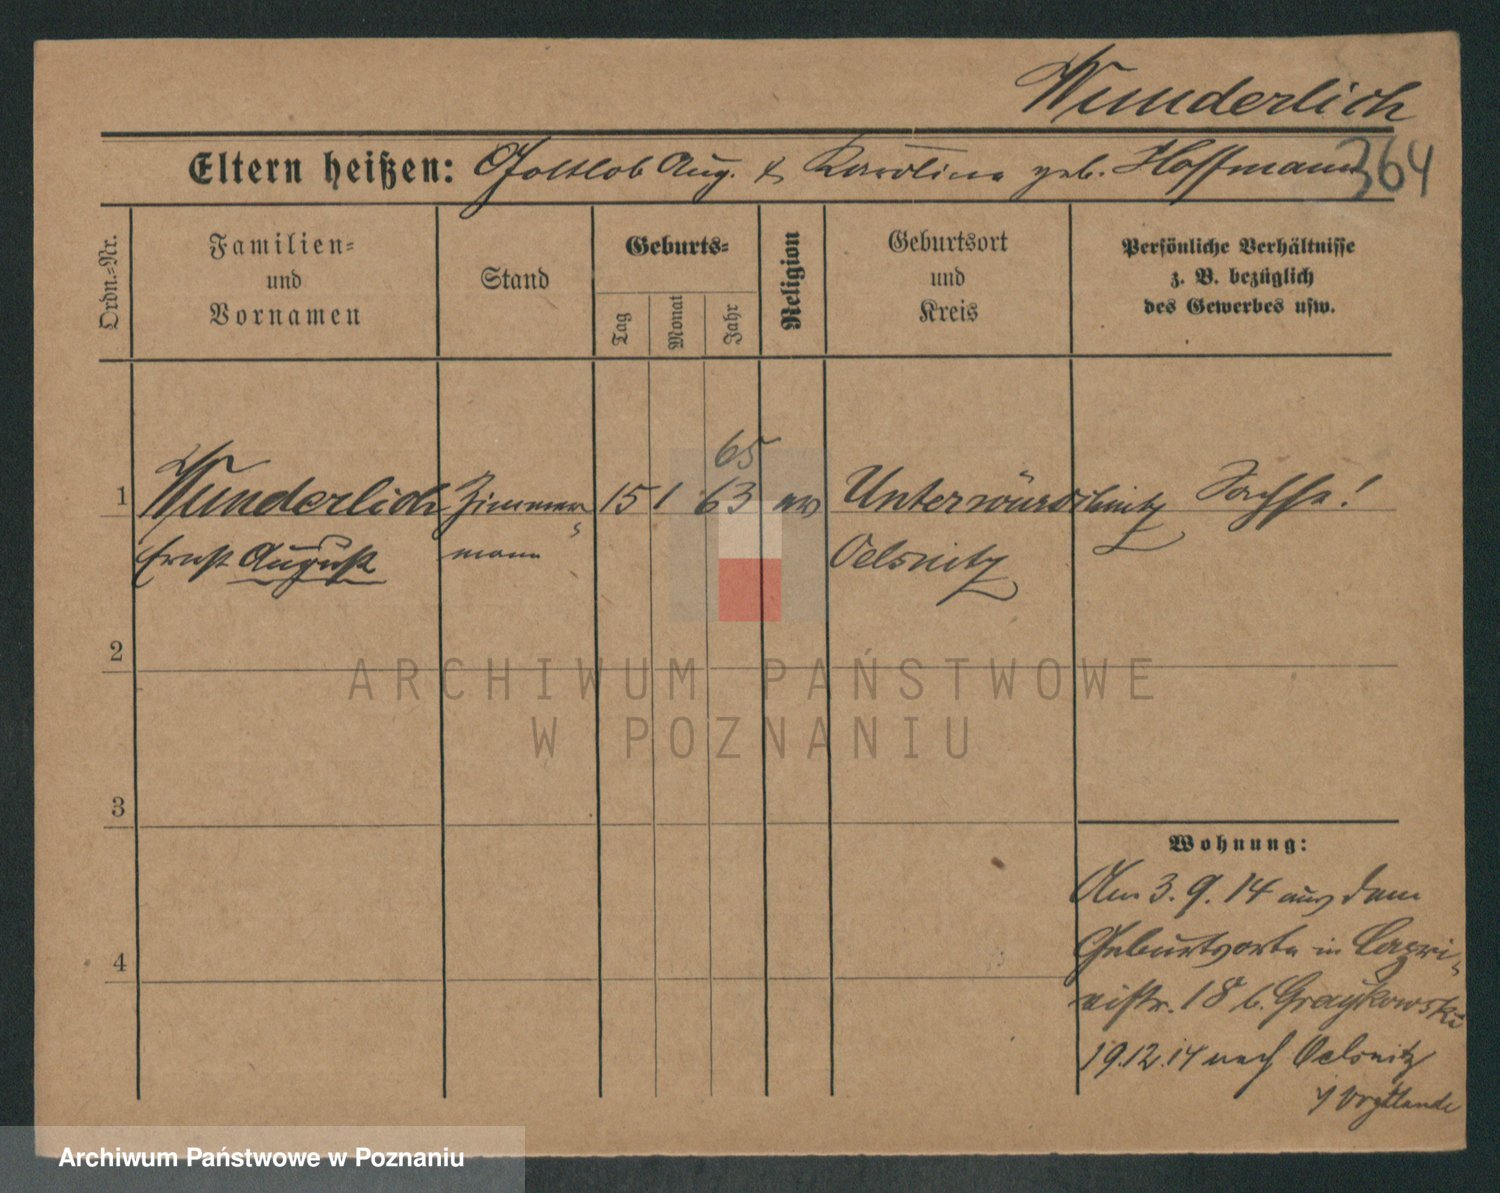 Wunderlich
Eltern heißen: Gottlob Aug. & Karoline geb. Hoffmann
364
Ordn.-Nr.
Familien-
und
Vornamen
Stand
Geburts-
Tag
Monat
Jahr
Religion
Geburtsort
und
Kreis
Persönliche Verhältnisse
z. B. bezüglich
des Gewerbes usw.
65
1 Wunderlich Zimmer- 15 1 63 ev Unterwürschnitz Sachse!
Ernst August mann Oelsnitz
2
ARCHIWUM PAŃSTWOWE
W POZNANIU
3
Wohnung:
Am 3. 9. 14 aus dem
Geburtsorte in Capri-
4
vistr. 18 b.
19.12.14 nach Oelsnitz
Vogtlande
Archiwum Państwowe w Poznaniu